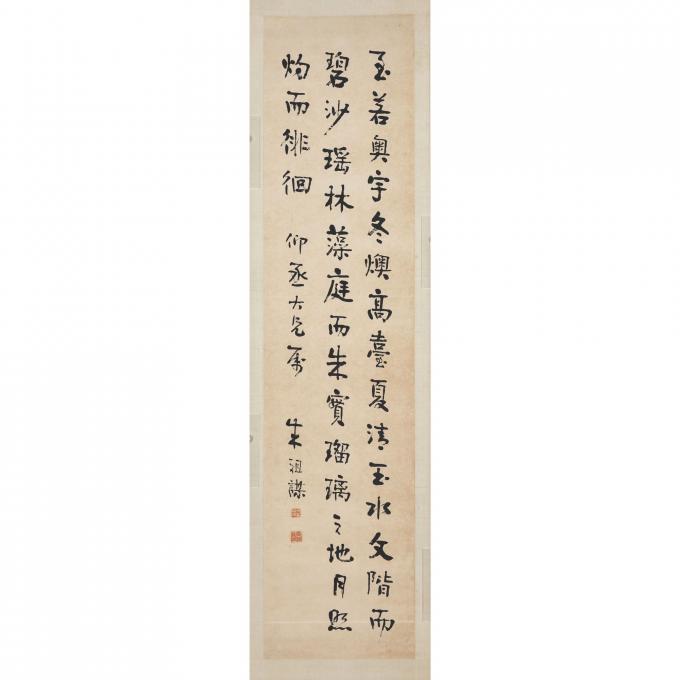 至若奧宇冬燠高臺夏清玉水文階而
碧沙瑶林藻庭而朱實瑠璃之地月照
灼而徘徊 仰丞大兄属 朱祖謀